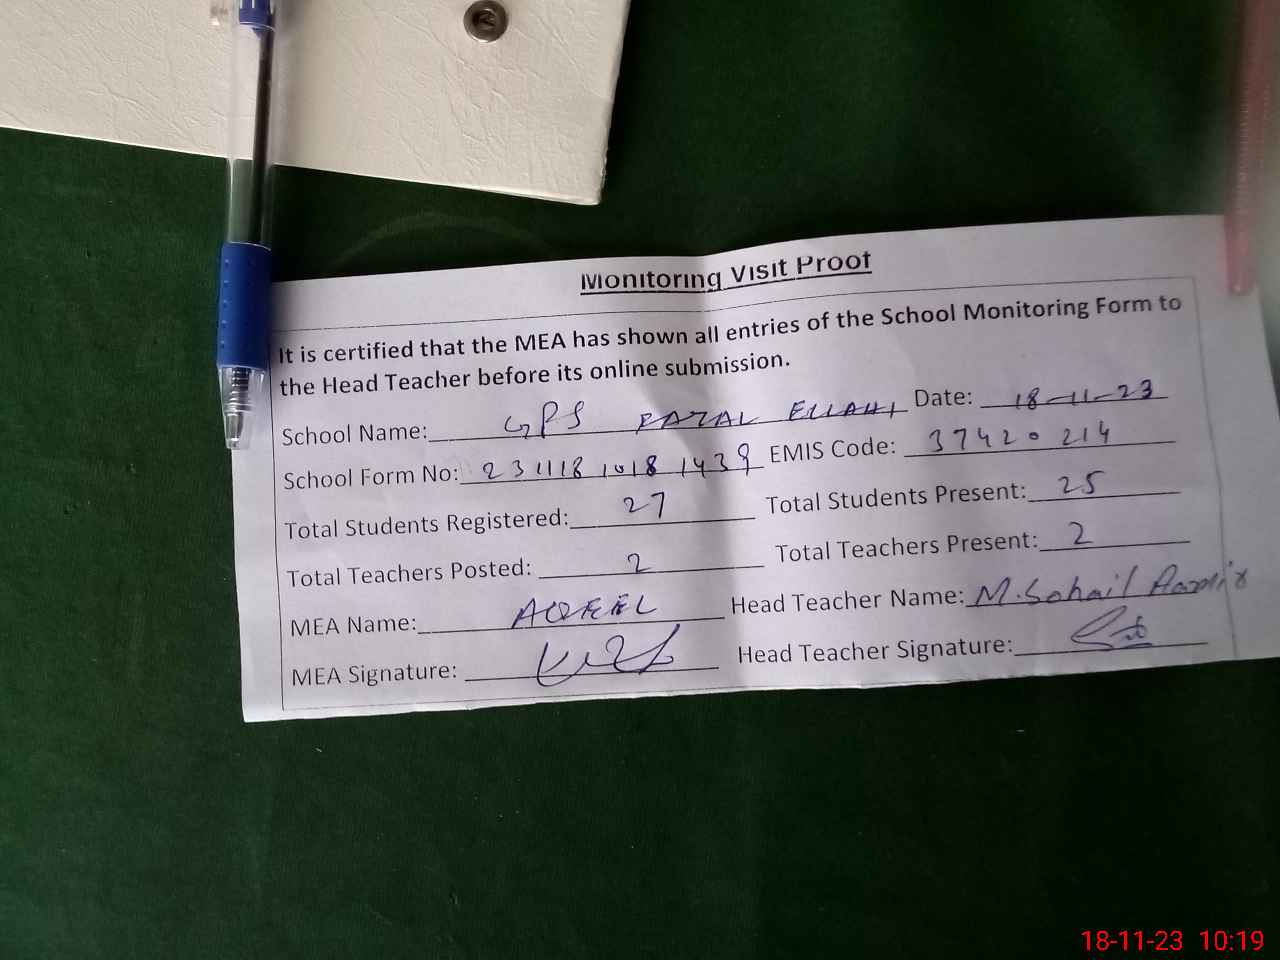 Monitoring Visit Proof
It is certified that the MEA has shown all entries of the School Monitoring Form to
the Head Teacher before its online submission.
School Name: GPS FAZAL ELLAHI Date: 18-11-23
School Form No: 231118 1018 1439 EMIS Code: 37420214
Total Students Registered: 27 Total Students Present: 25
Total Teachers Posted: 2 Total Teachers Present: 2
MEA Name: AQEEL Head Teacher Name: M.Sohail
MEA Signature: Head Teacher Signature:
18-11-23 10:19